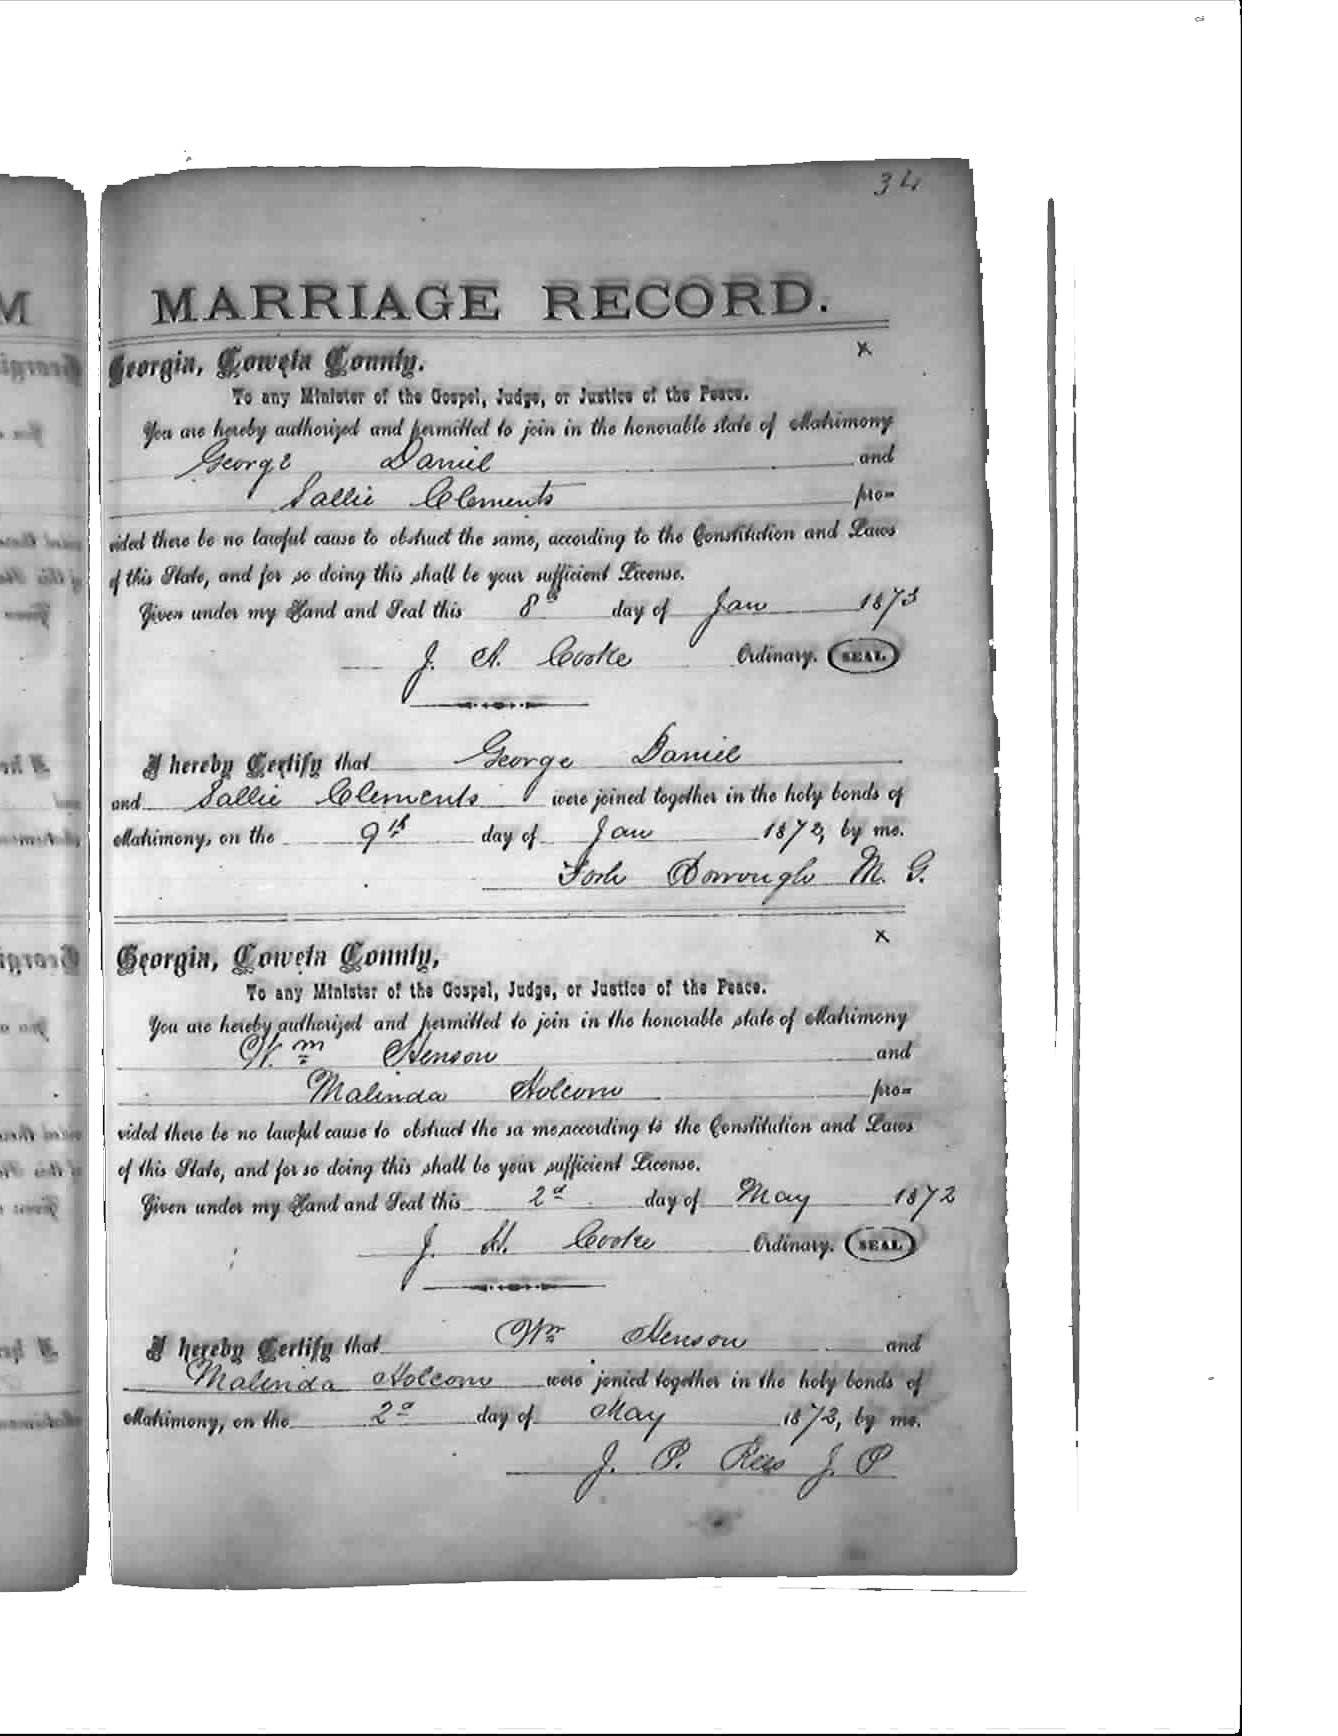 34
MARRIAGE RECORD.
x
Georgia, Coweta County.
To any Minister of the Gospel, Judge, or Justice of the Peace.
You are hereby authorized and permitted to join in the honorable state of Matrimony
George Daniel and
Sallie Clements pro-
vided there be no lawful cause to obstruct the same, according to the Constitution and Laws
of this State, and for so doing this shall be your sufficient License.
Given under my Hand and Seal this 8th day of Jan 1873
J. H. Cooke Ordinary. SEAL
I hereby Certify that George Daniel
and Sallie Clements were joined together in the holy bonds of
Matrimony, on the 9th day of Jan 1873, by me.
Dorrough M. G.
x
Georgia, Coweta County,
To any Minister of the Gospel, Judge, or Justice of the Peace.
You are hereby authorized and permitted to join in the honorable state of Matrimony
Wm Henson and
Malinda Holcom pro-
vided there be no lawful cause to obstruct the sa me,according to the Constitution and Laws
of this State, and for so doing this shall be your sufficient License.
Given under my Hand and Seal this 2d day of May 1872
J. H. Cooke Ordinary. SEAL
I hereby Certify that Wm Henson and
Malinda Holcom were jonied together in the holy bonds of
Matrimony, on the 2d day of May 1872, by me.
J. P. Rees J. P